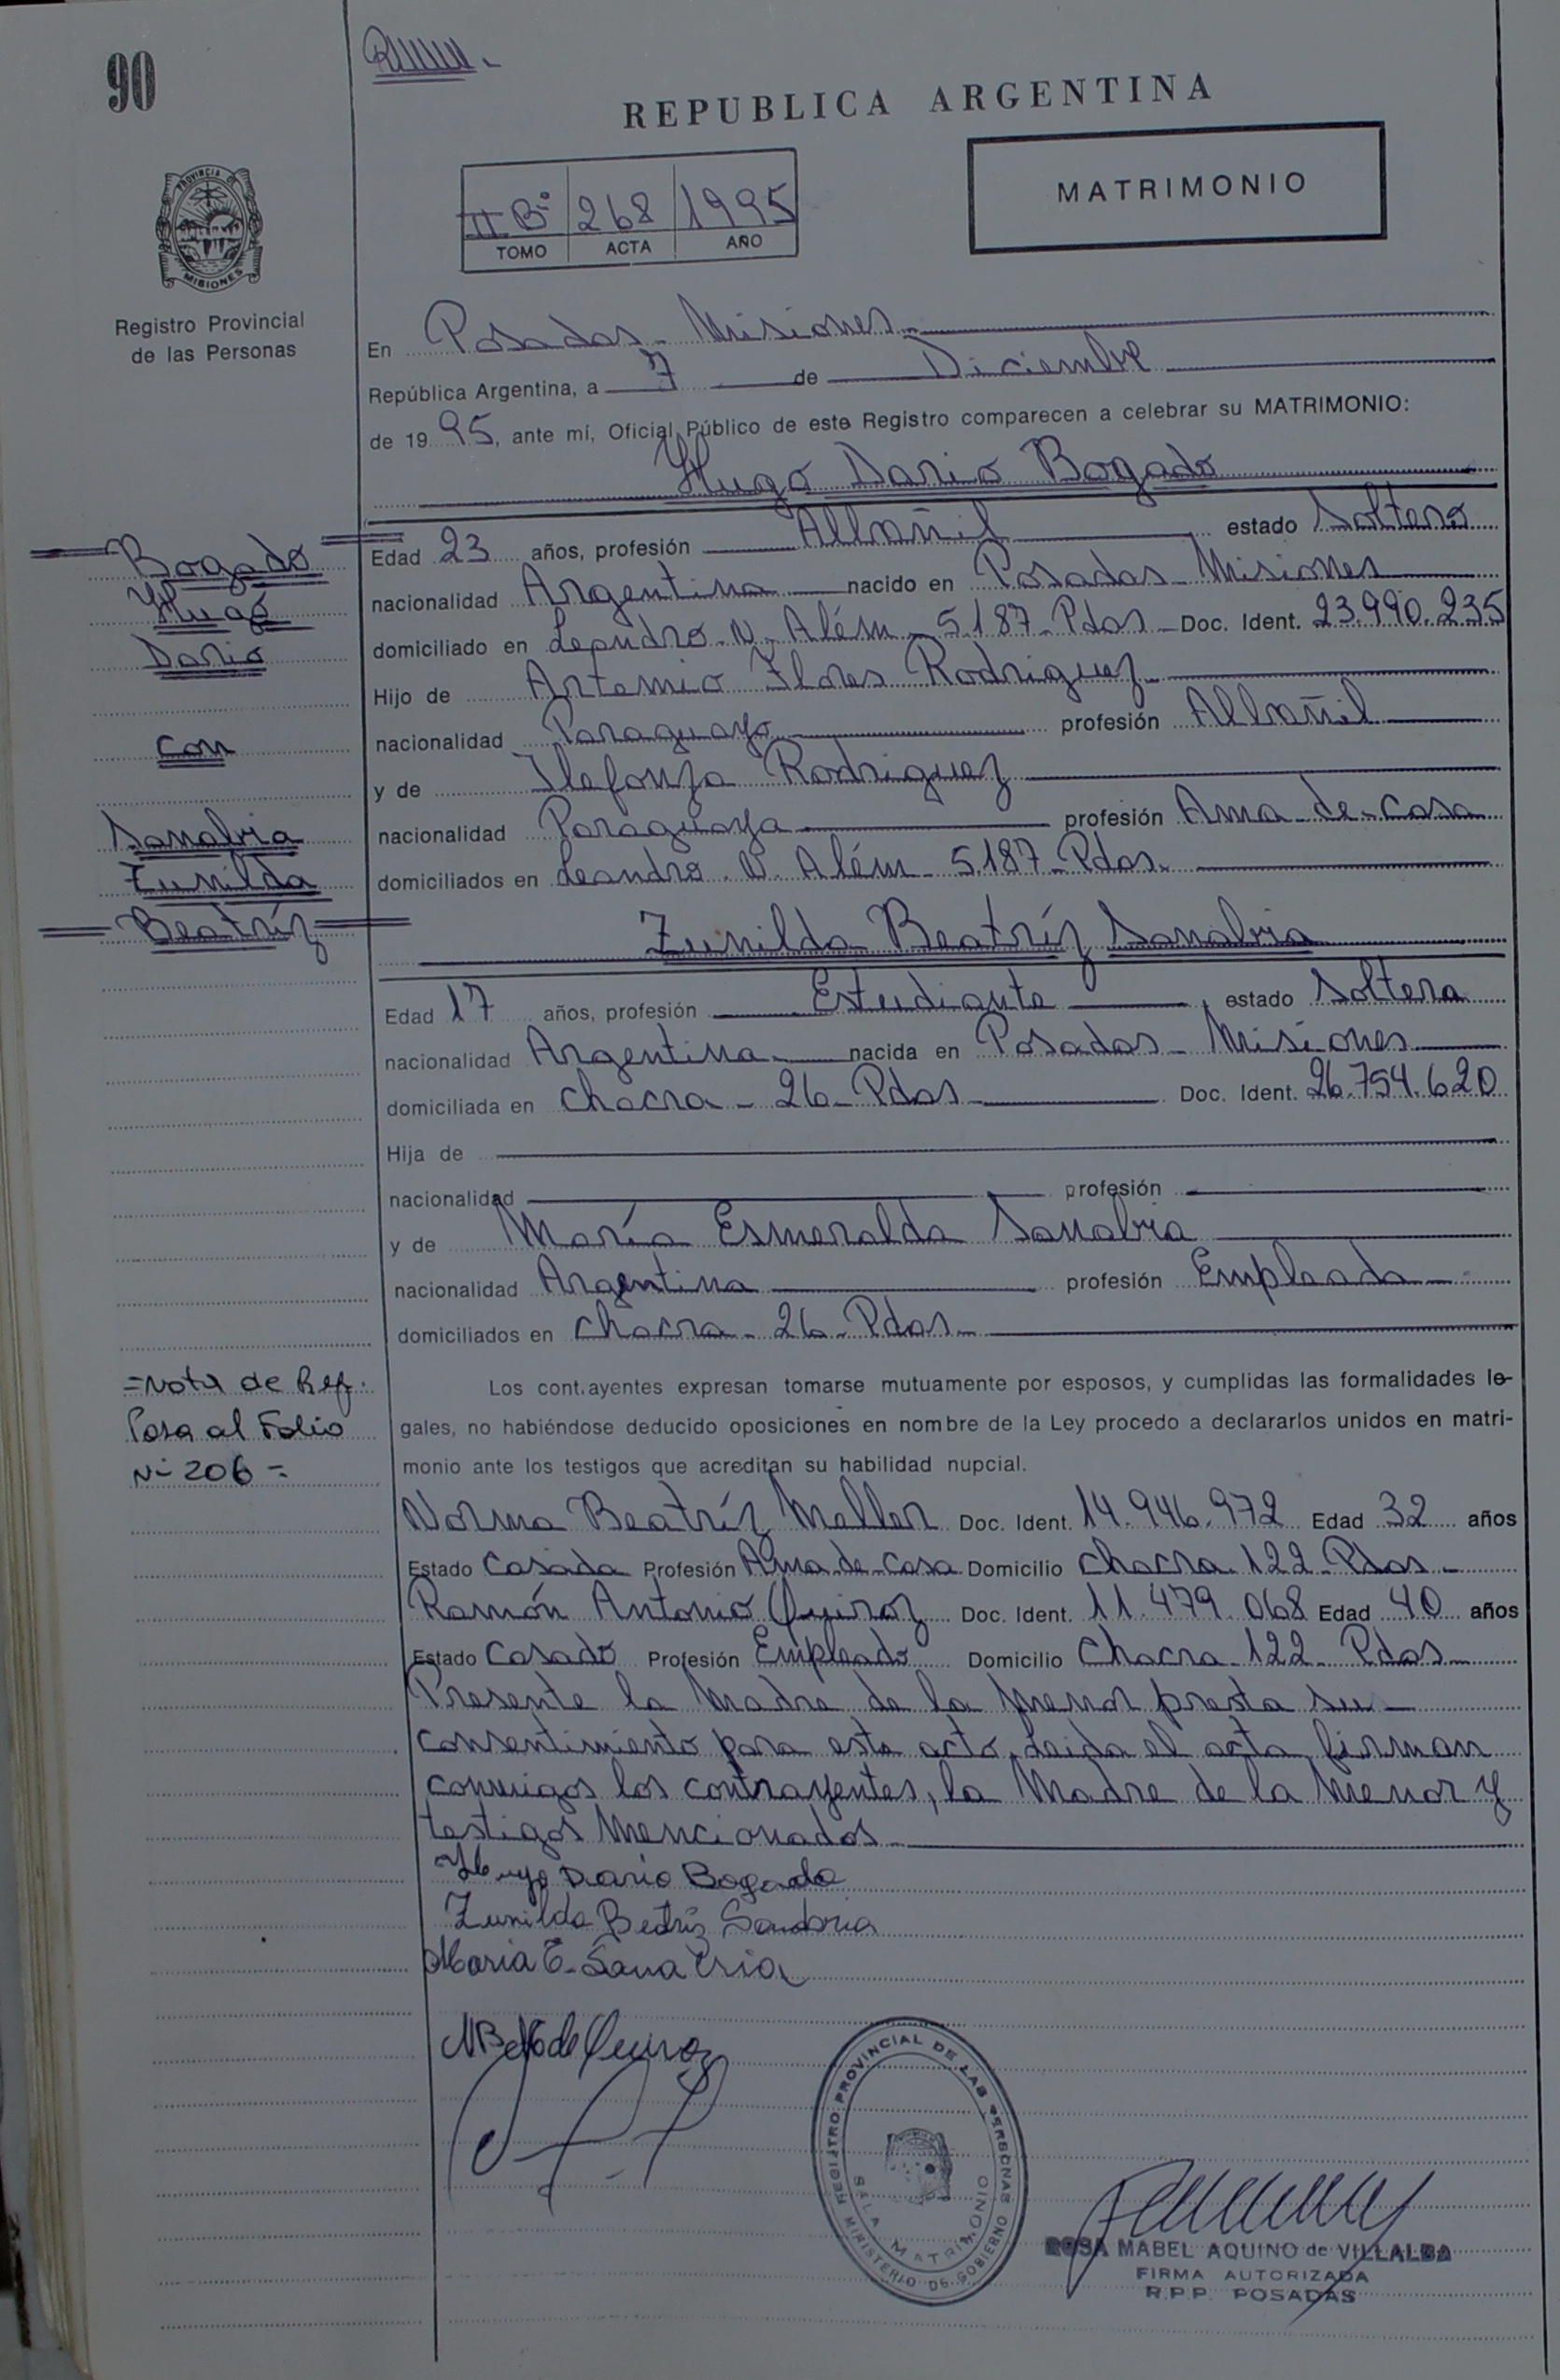 90
REPUBLICA ARGENTINA
II Bº 268 1995
TOMO ACTA AÑO
MATRIMONIO
PROVINCIA D
MISIONES
Registro Provincial
de las Personas
En Posadas - Misiones
República Argentina, a 7 de Diciembre
de 1995, ante mí, Oficial Público de este Registro comparecen a celebrar su MATRIMONIO:
Hugo Dario Bogado
Bogado
Hugo
Dario
con
Sanabria
Zunilda
Beatríz
Edad 23 años, profesión Albañil estado Soltero
nacionalidad Argentina nacido en Posadas - Misiones
domiciliado en Leandro. N. Além - 5187 - Pdas - Doc. Ident. 23.990.235
Hijo de Artemio Flores Rodriguez
nacionalidad Paraguayo profesión Albañil
y de Ilefonza Rodriguez
nacionalidad Paraguaya profesión Ama - de - casa
domiciliados en Leandro. N. Além - 5.187 - Pdas.
Zunilda Beatríz Sanabria
Edad 17 años, profesión Estudiante, estado Soltera
nacionalidad Argentina nacida en Posadas - Misiones
domiciliada en chacra - 26 - Pdas Doc. Ident. 26.754.620
Hija de
nacionalidad profesión
y de María Esmeralda Sanabria
nacionalidad Argentina profesión Empleada
domiciliados en chacra - 26 - Pdas
=Nota de Ref.
Pasa al Folio
Nº 206 =
Los cont.ayentes expresan tomarse mutuamente por esposos, y cumplidas las formalidades le-
gales, no habiéndose deducido oposiciones en nombre de la Ley procedo a declararlos unidos en matri-
monio ante los testigos que acreditan su habilidad nupcial.
Norma Beatríz Meller Doc. Ident. 14.946.972 Edad 32 años
Estado casada Profesión Ama-de-casa Domicilio chacra 122 - Pdas -
Ramón Antonio Quiroz Doc. Ident. 11.479.068 Edad 40 años
Estado casado Profesión Empleado Domicilio chacra - 122 - Pdas
Presente la Madre de la Menor presta su -
consentimiento para este acto. Leida el acta, firman
conmigos los contrayentes, la Madre de la Menor y
testigos Mencionados
Hugo Dario Bogado
Zunilda Beatriz Sanabria
Maria E. Sanabria
de Quiroz
REGISTRO PROVINCIAL DE LAS PERSONAS
SALA MATRIMONIO
MINISTERIO DE GOBIERNO
ROSA MABEL AQUINO de VILLALBA
FIRMA AUTORIZADA
R.P.P. POSADAS